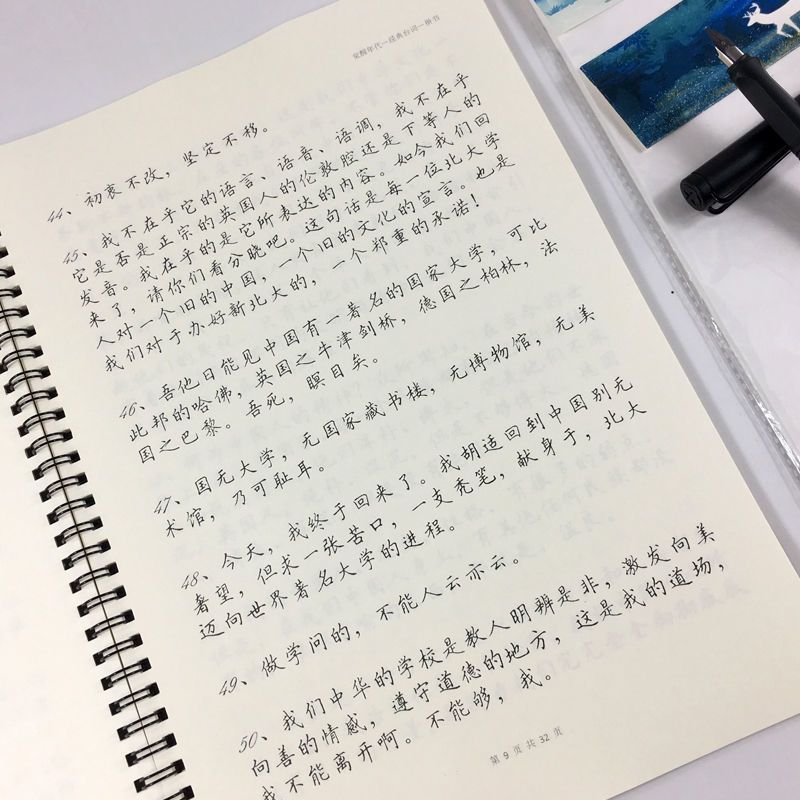 觉醒年代—经典台词—楷书
44、初衷不改，坚定不移。
45、我不在乎它的语言、语音、语调，我不在乎
它是否是正宗的英国人的伦敦腔还是下等人的
发音。我在乎的是它所表达的内容。如今我们回
来了，请你们看分晓吧。这句话是每一位北大学
人对一个旧的中国，一个旧的文化的宣言。也是
我们对于办好新北大的，一个郑重的承诺！
46、吾他日能见中国有一著名的国家大学，可比
此邦的哈佛，英国之牛津剑桥，德国之柏林，法
国之巴黎。吾死，瞑目矣。
47、国无大学，无国家藏书楼，无博物馆，无美
术馆，乃可耻耳。
48、今天，我终于回来了。我胡适回到中国别无
奢望，但求一张苦口，一支秃笔，献身于，北大
迈向世界著名大学的进程。
49、做学问的，不能人云亦云。
50、我们中华的学校是教人明辨是非，激发向美
向善的情感，遵守道德的地方，这是我的道场，
我不能离开啊。不能够，我。
第 9 页 共 32 页